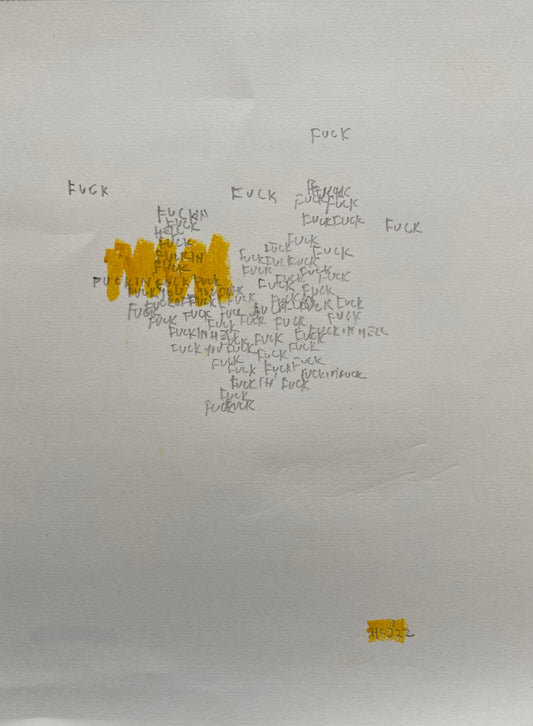 FUCK
FUCK
FUCK
FUCK FUCK
FUCKIN
FUCK
FUCK FUCK
FUCK
HELL
FUCK
FUCK
FUCKIN
FUCK
FUCK
FUCK FUCK FUCK
FUCK
FUCK
FUCK
FUCK
FUCKIN FUCK FUCK
FUCK
FUCK
FUCK
FUCK
FUCK
FUCK
FUCK
FUCK
FUCK
FUCK
FUCK
FUCK
FUCK
FUCK
FUCKIN HELL
FUCKIN HELL
FUCK
FUCK
FUCK YOU FUCK
FUCK
FUCK
FUCK
FUCK
FUCK
FUCK
FUCKIN FUCK
FUCKIN
FUCK
FUCK
FUCK